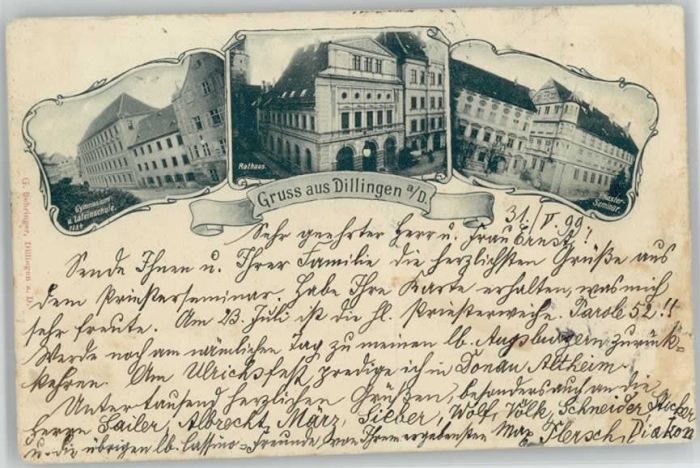 Gymnasium
u. Lateinschule.
Rathaus.
Priester-
Seminar.
Gruss aus Dillingen a/D.
G. Behringer, Dillingen a. D.
31./V. 99.
Sehr geehrter Herr u. Frau Ernst!
Sende Ihnen u. Ihrer Familie die herzlichsten Grüße aus
dem Priesterseminar. Habe Ihre Karte erhalten, was mich
sehr freute. Am 23. Juli ist die hl. Priesterweihe. Parole 52!!
Werde noch am nämlichen Tag zu meinen lb. Augsburgern zurück-
kehren. Am Ulrichsfest predige ich in Donau Altheim.
Unter tausend herzlichen Grüßen, besonders auch an die
Herrn Sailer, Albrecht, März, Sieber, Wolf, Völk, Schneider,
u. die übrigen lb. Cassino-Freunde, von Ihrem ergebensten Max Hersch, Diakon